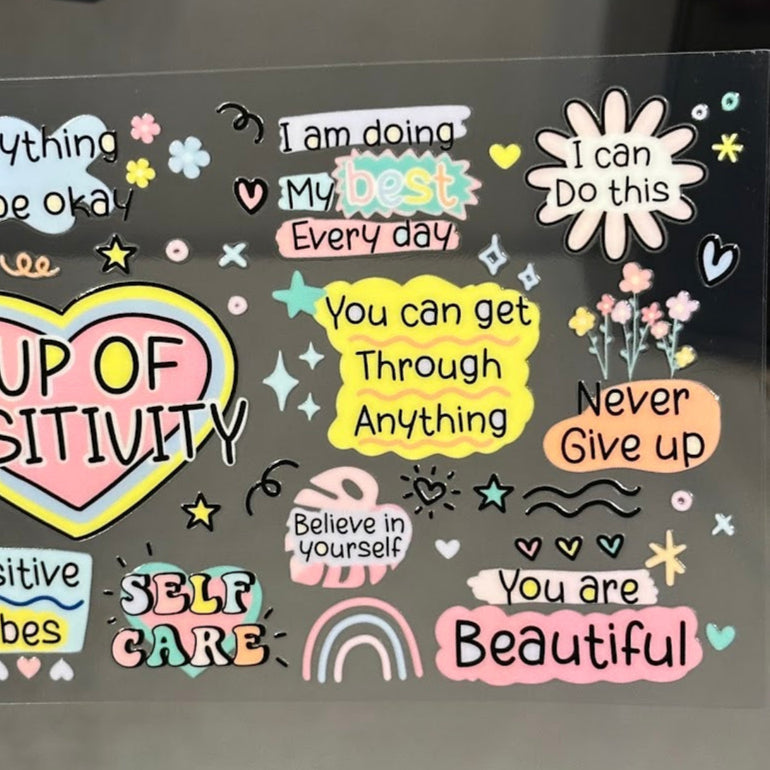 ything
be okay
I am doing
My best
Every day
I can
Do this
UP OF
SITIVITY
You can get
Through
Anything
Never
Give up
Believe in
yourself
sitive
bes
SELF
CARE
You are
Beautiful